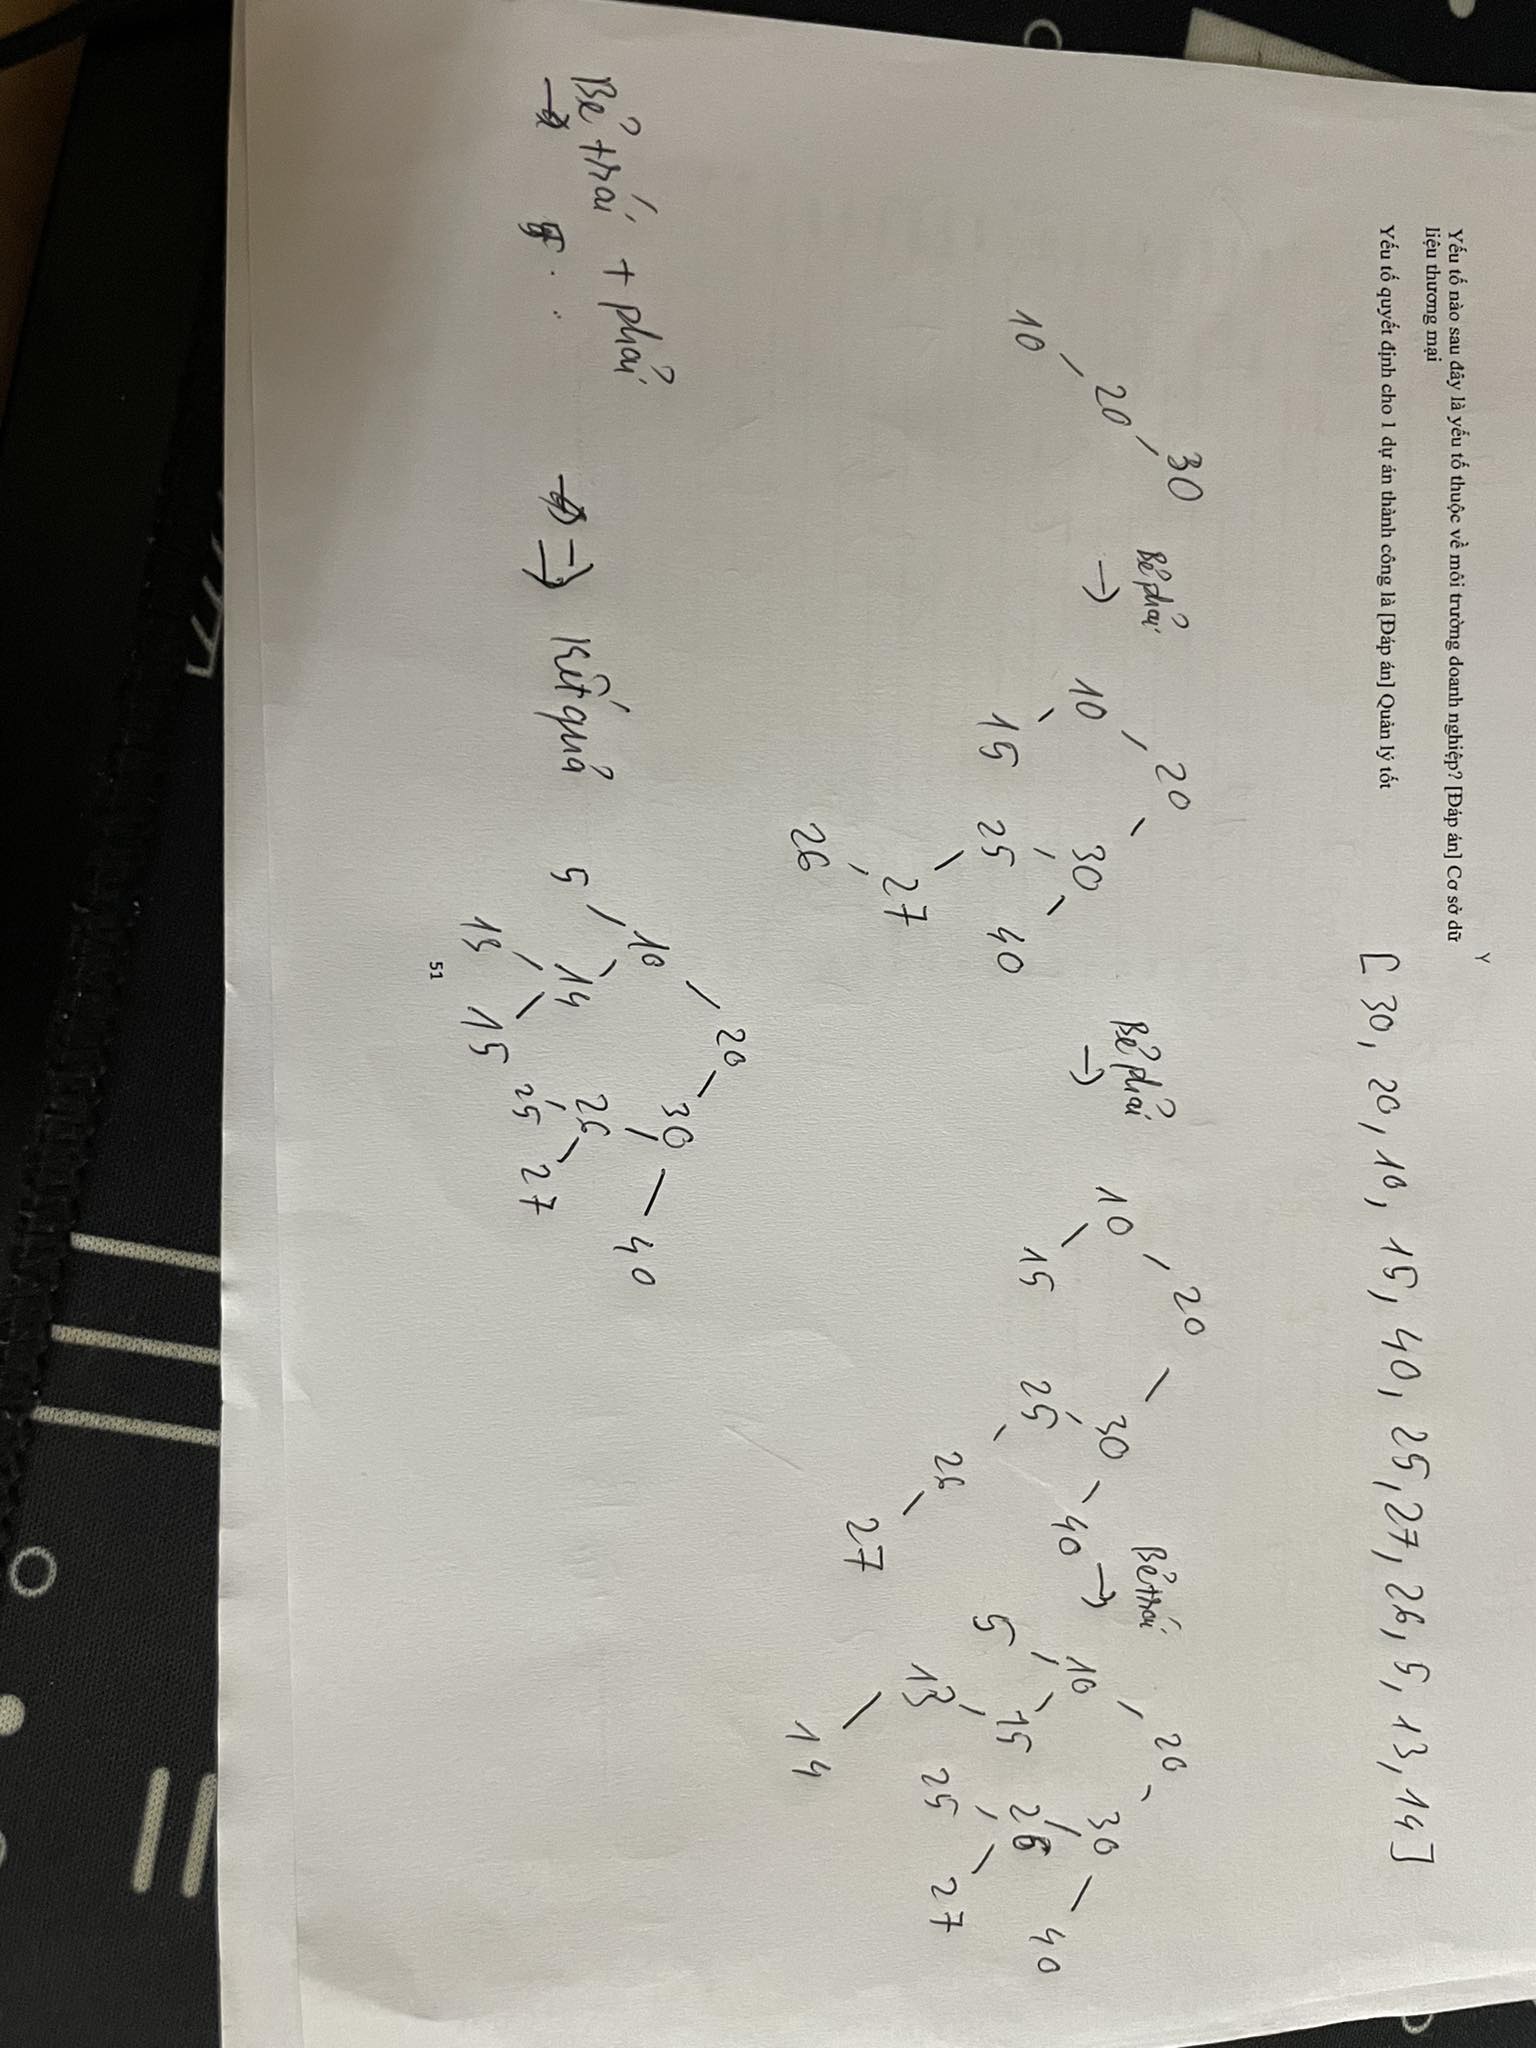 Y
Yếu tố nào sau đây là yếu tố thuộc về môi trường doanh nghiệp? [Đáp án] Cơ sở dữ
liệu thương mại
Yếu tố quyết định cho 1 dự án thành công là [Đáp án] Quản lý tốt
[ 30, 20, 10, 15, 40, 25, 27, 26, 5, 13, 14 ]
30
20
10
Bẻ phải
→
20
10 30
15 25 40
27
26
Bẻ phải
→
20
10 30
15 25 40
26
27
Bẻ trái
→
20
10 30
5 15 26 40
13 25 27
14
Bẻ trái + phải
⇒ Kết quả
20
10 30
5 14 26 40
13 15 25 27
51